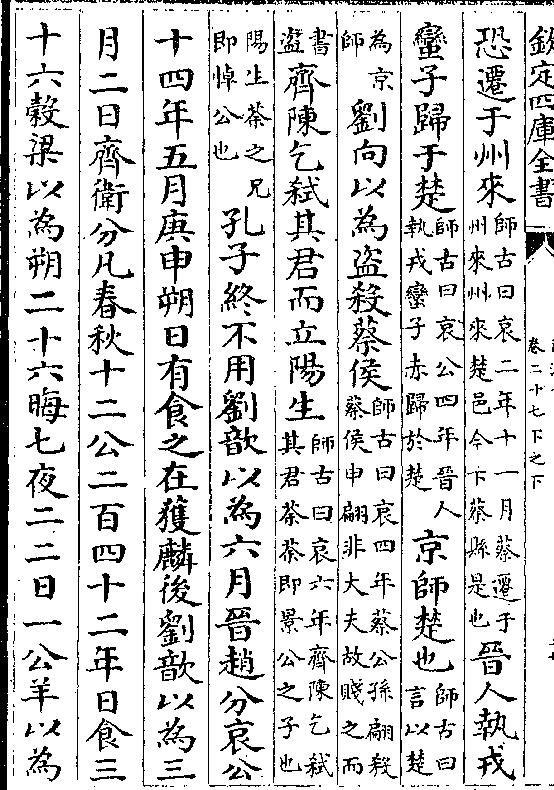 欽定四庫全書
卷二十七下之下
恐遷于州來師古曰哀二年十一月蔡遷于州來州來楚邑今下蔡縣是也晉人執戎
蠻子歸于楚師古曰哀公四年晉人執戎蠻子赤歸於楚京師楚也師古曰言以楚
為京師劉向以為盜殺蔡侯師古曰哀四年蔡公孫翩殺蔡侯申翩非大夫故賤之而
書盜齊陳乞弑其君而立陽生師古曰哀六年齊陳乞弑其君荼荼即景公之子也
陽生荼之兄即悼公也孔子終不用劉歆以為六月晉趙分哀公
十四年五月庚申朔日有食之在獲麟後劉歆以為三
月二日齊衛分凡春秋十二公二百四十二年日食三
十六穀梁以為朔二十六晦七夜二二日一公羊以為